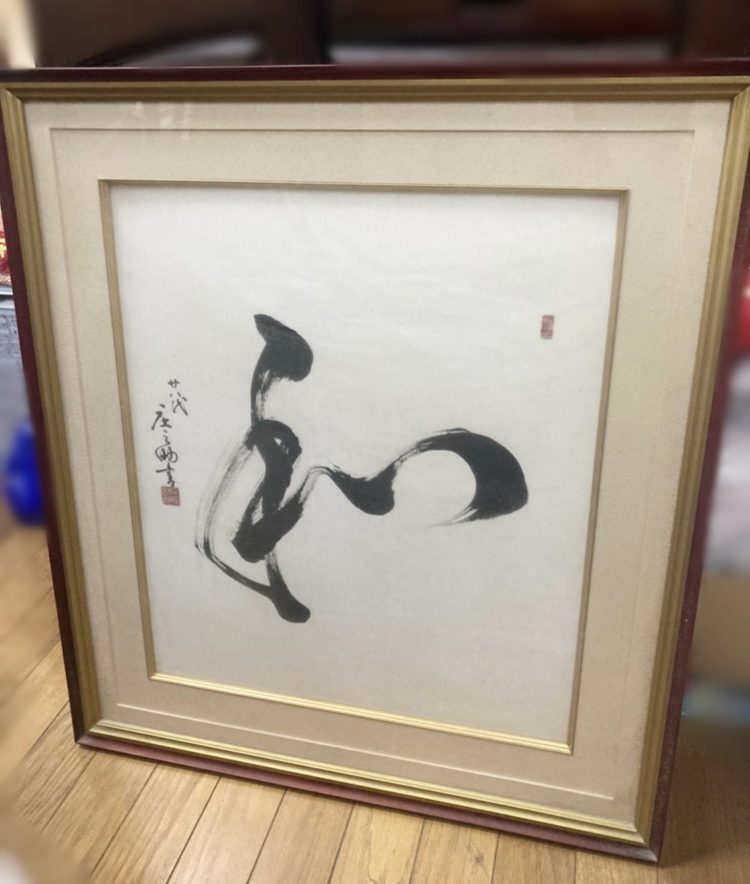 和
廿八代
庄之助書